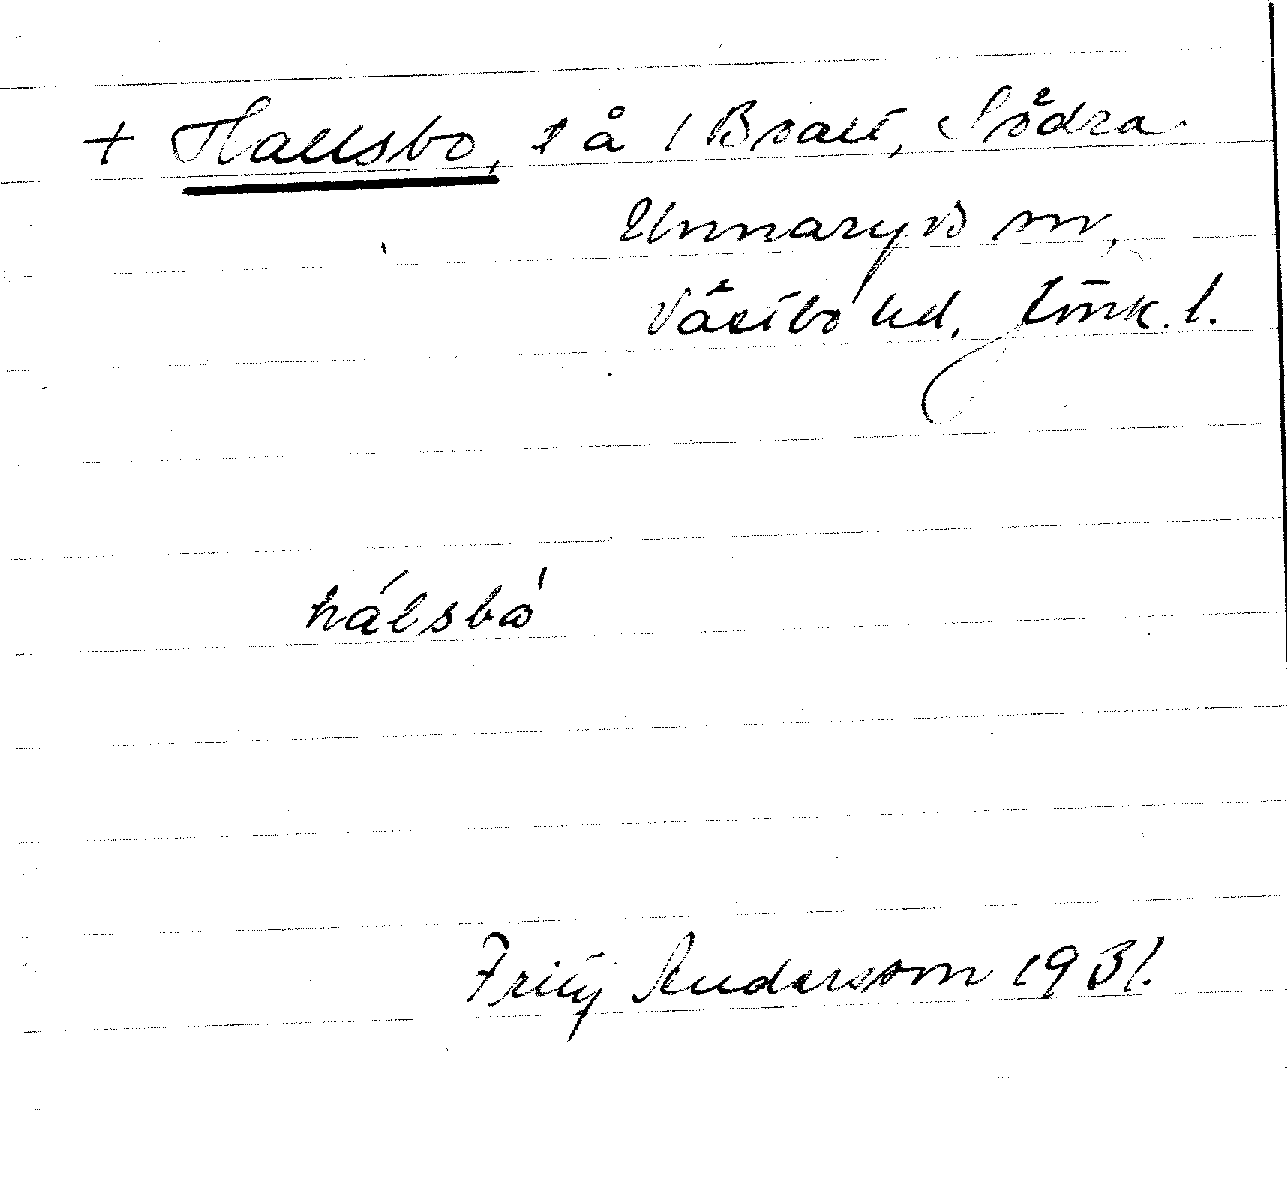 + Hallsbo, t å i Bralt, Södra
Unnaryds sn,
Västbo hd. Jönk. l.
hálsbó
Fritz Andersson 1931.